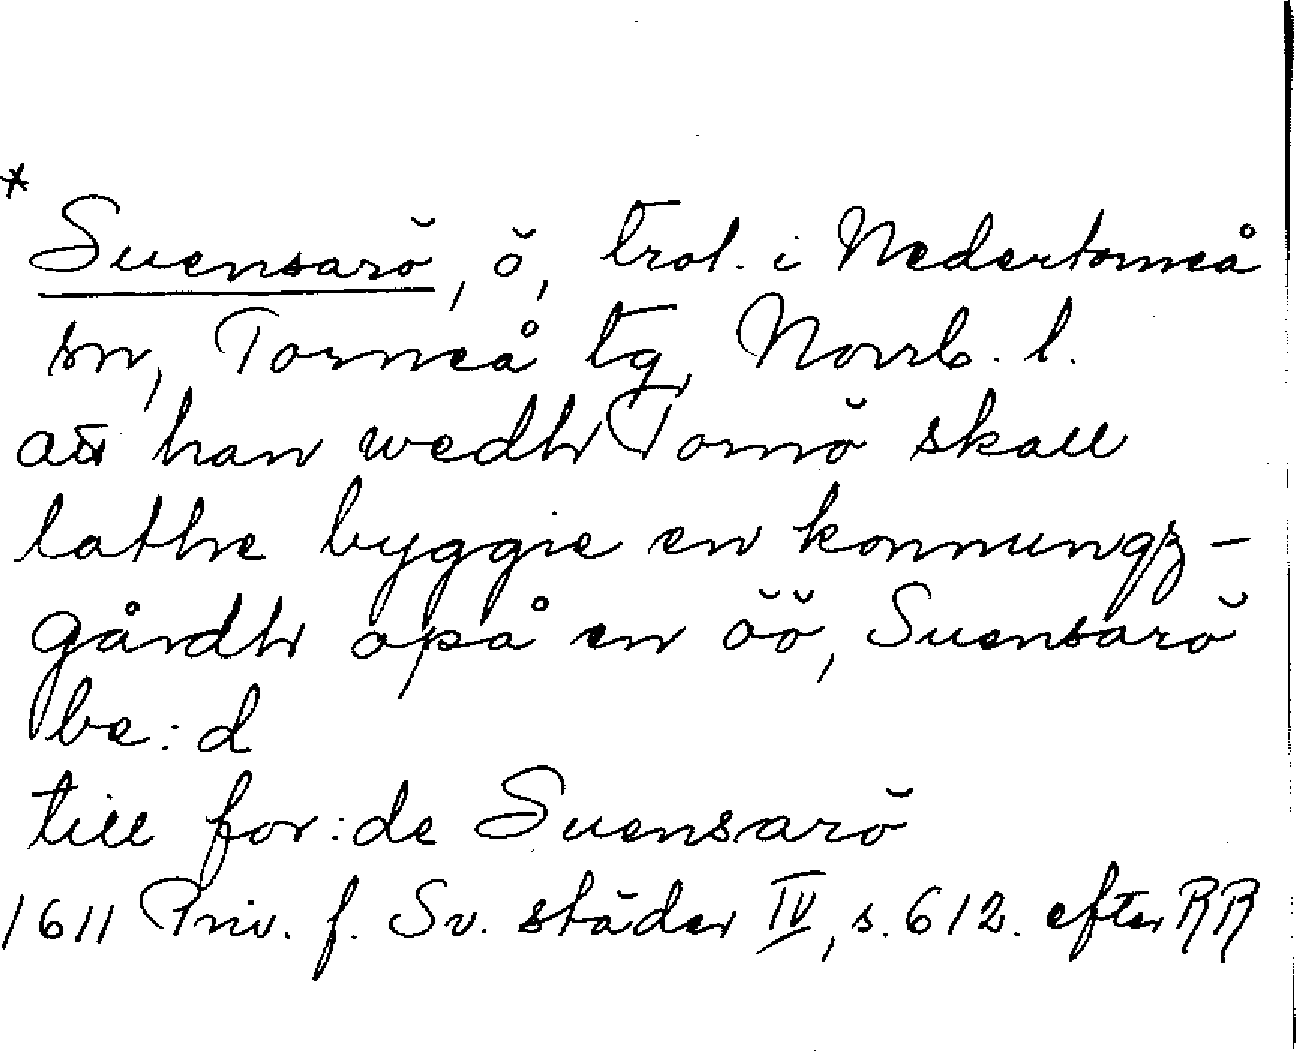 *
Suensarö, ö, trol. i Nedertorneå
sn, Torneå tg, Norrb. l.
att han wedh Tornö skall
lathe byggie en konnungz-
gårdh opå en öö, Suensarö
be:d
till for:de Suensarö
1611 Priv. f. Sv. städer IV, s. 612. efter RR